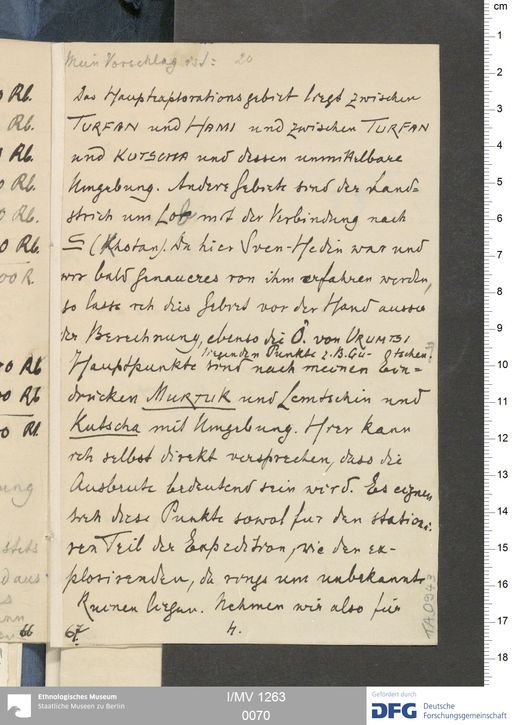 Mein Vorschlag ist: 20
Das Hauptexplorationsgebiet liegt zwischen
TURFAN und HAMI und zwischen TURFAN
und KUTSCHA und dessen unmittelbare
Umgebung. Andere Gebiete sind der Land=
strich um Lob mit der Verbindung nach
S (Khotan). Da hier Sven-Hedin war und
wir bald genaueres von ihm erfahren werden,
so lasse ich dies Gebiet vor der Hand ausser
der Berechnung, ebenso die Ö. von URUMTSI
liegenden Punkte z.B. Gu- tschen.
Hauptpunkte sind nach meinen Ein=
drücken MURTUK und Lemtschin und
Kutscha mit Umgebung. Hier kann
ich selbst direkt versprechen, dass die
Ausbeute bedeutend sein wird. Es eignen
sich diese Punkte sowol für den station.
ren Teil der Expedition, wie den ex-
plorirenden, da rings um unbekannte
Ruinen liegen. Nehmen wir also für
67. 4.
TA 0943
Rb.
Rb.
Rb.
Rb.
Rb.
Rb.
00 R.
Rb
Rb
Rb.
ung
stets
d aus
66
cm
1
2
3
4
5
6
7
8
9
10
11
12
13
14
15
16
17
18
Ethnologisches Museum
Staatliche Museen zu Berlin
I/MV 1263
0070
Gefördert durch
DFG Deutsche
Forschungsgemeinschaft